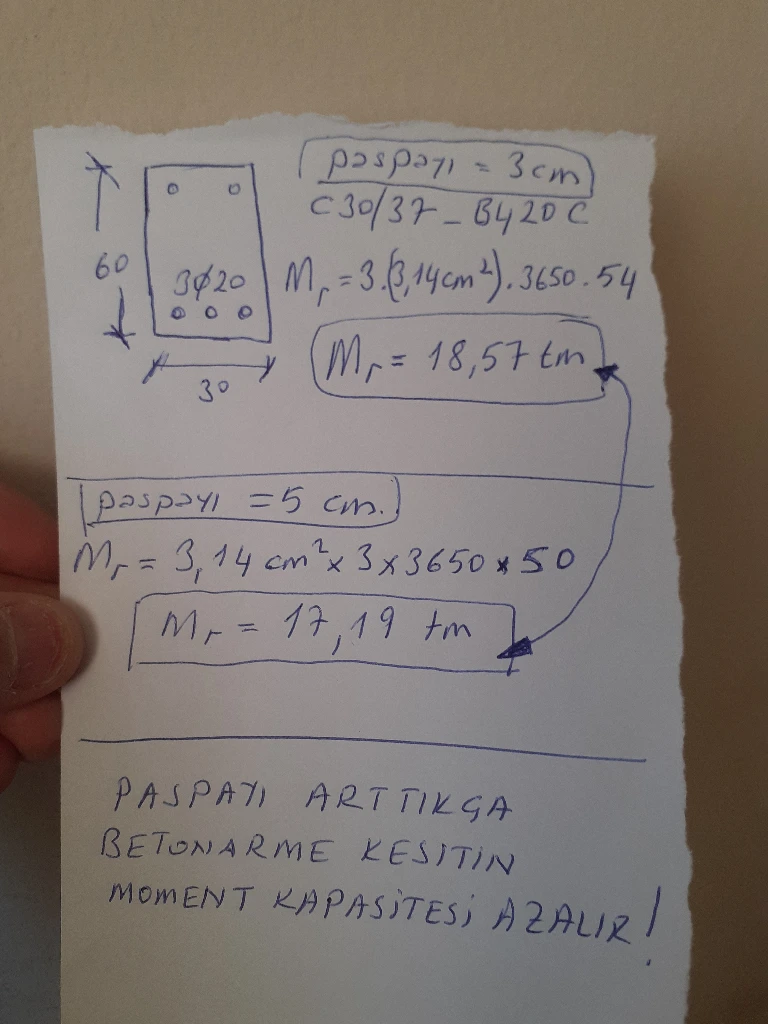 paspayı = 3 cm
C30/37 - B420C
60
3ϕ20
Mr = 3.(3,14cm²).3650.54
Mr = 18,57 tm
30
paspayı = 5 cm.
Mr = 3,14 cm² x 3 x 3650 x 50
Mr = 17,19 tm
PASPAYI ARTTIKÇA
BETONARME KESİTİN
MOMENT KAPASİTESİ AZALIR!